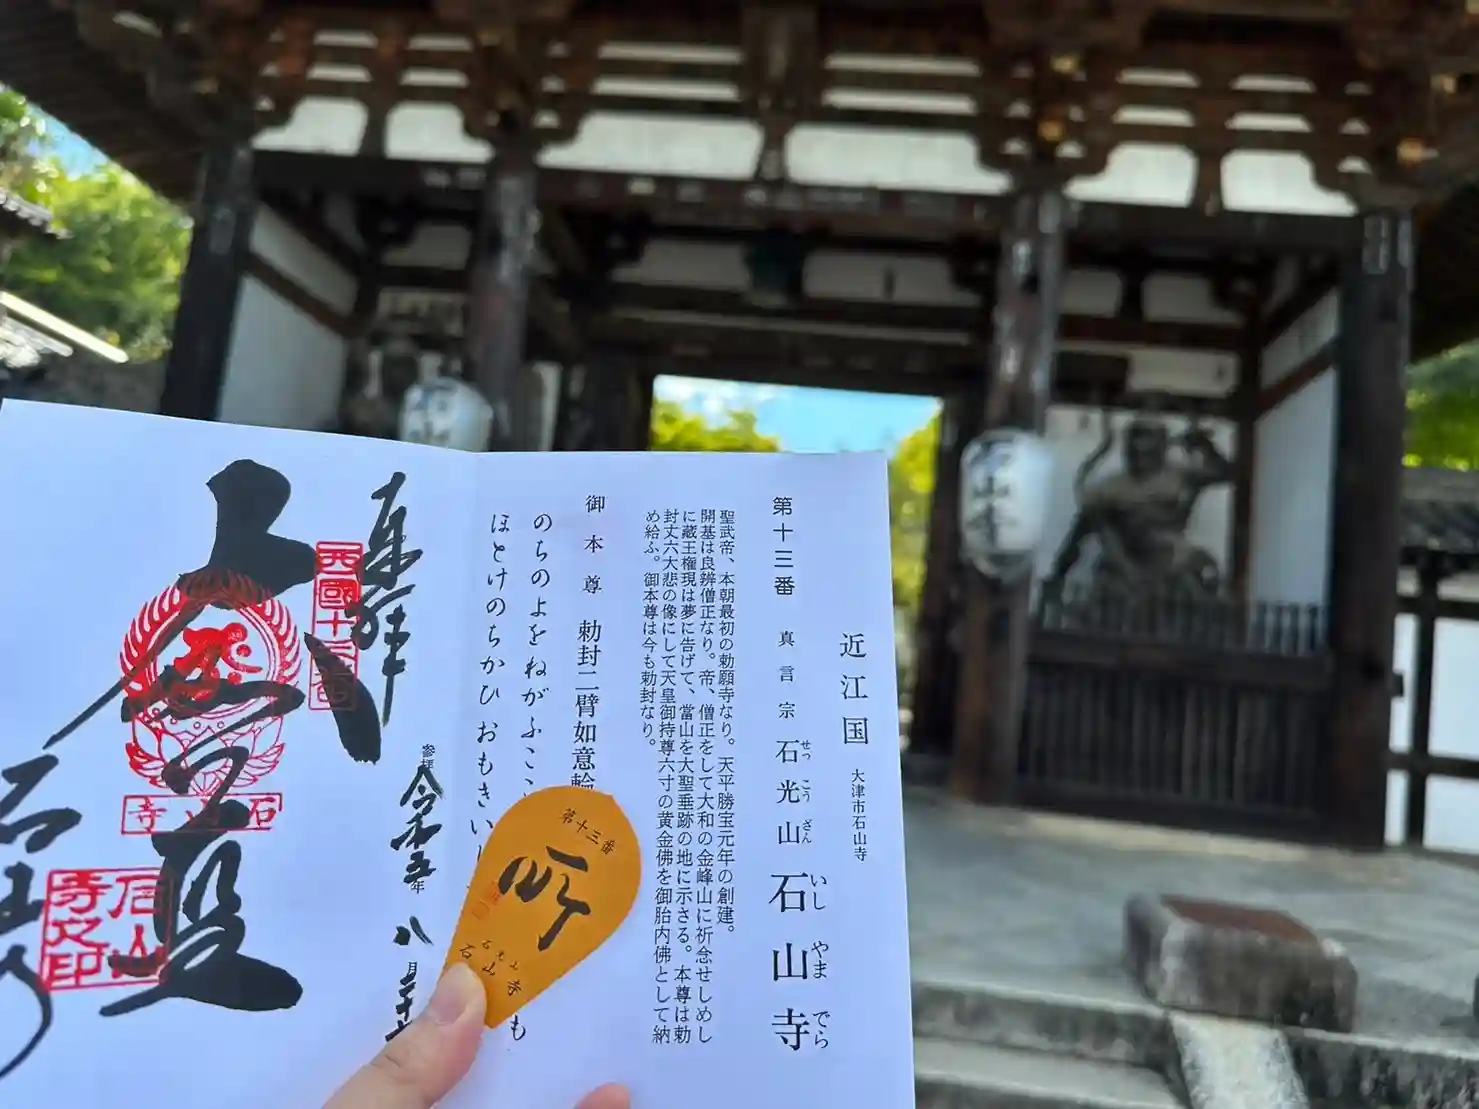 近江国
大津市石山寺
第十三番
真言宗
石光山
せっこうざん
石山寺
いしやまでら
聖武帝、本朝最初の勅願寺なり。天平勝宝元年の創建。
開基は良辨僧正なり。帝、僧正をして大和の金峰山に祈念せしめし
に蔵王権現は夢に告げて、當山を大聖垂跡の地に示さる。本尊は勅
封丈六大悲の像にして天皇御持尊六寸の黄金佛を御胎内佛として納
め給ふ。御本尊は今も勅封なり。
御本尊
勅封二臂如意輪
のちのよをねがふここ
ほとけのちかひ おもきい
も
奉拝
西國十三番
参拝
令和五年
八月二十
大伽藍
石山寺
石山寺
石山寺之印
第十三番
石光山
石山寺
石山寺